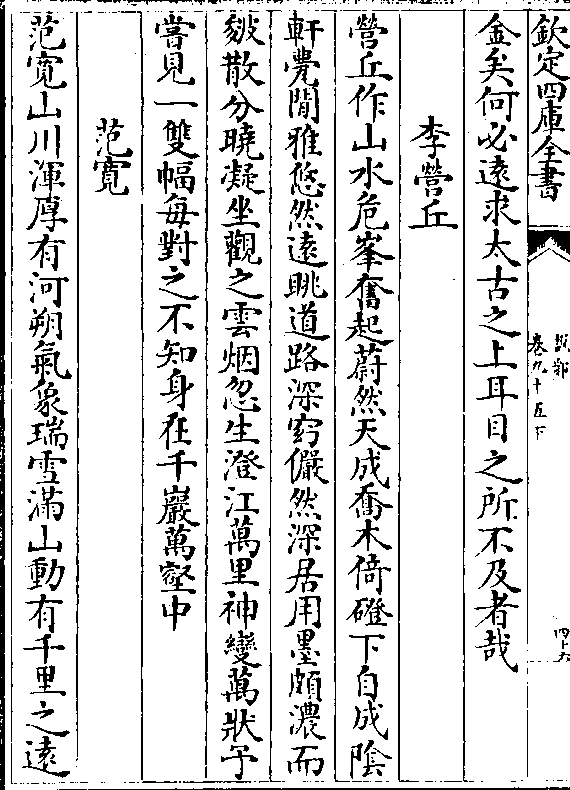 欽定四庫全書
說郛
卷九十五下
四十六
金矣何必遠求太古之上耳目之所不及者哉
李營丘
營丘作山水危峯奮起蔚然天成喬木倚磴下自成陰
軒甍閒雅悠然遠眺道路深窈儼然深居用墨頗濃而
皴散分曉凝坐觀之雲烟忽生澄江萬里神變萬狀予
嘗見一雙幅每對之不知身在千巖萬壑中
范寛
范寛山川渾厚有河朔氣象瑞雪滿山動有千里之遠